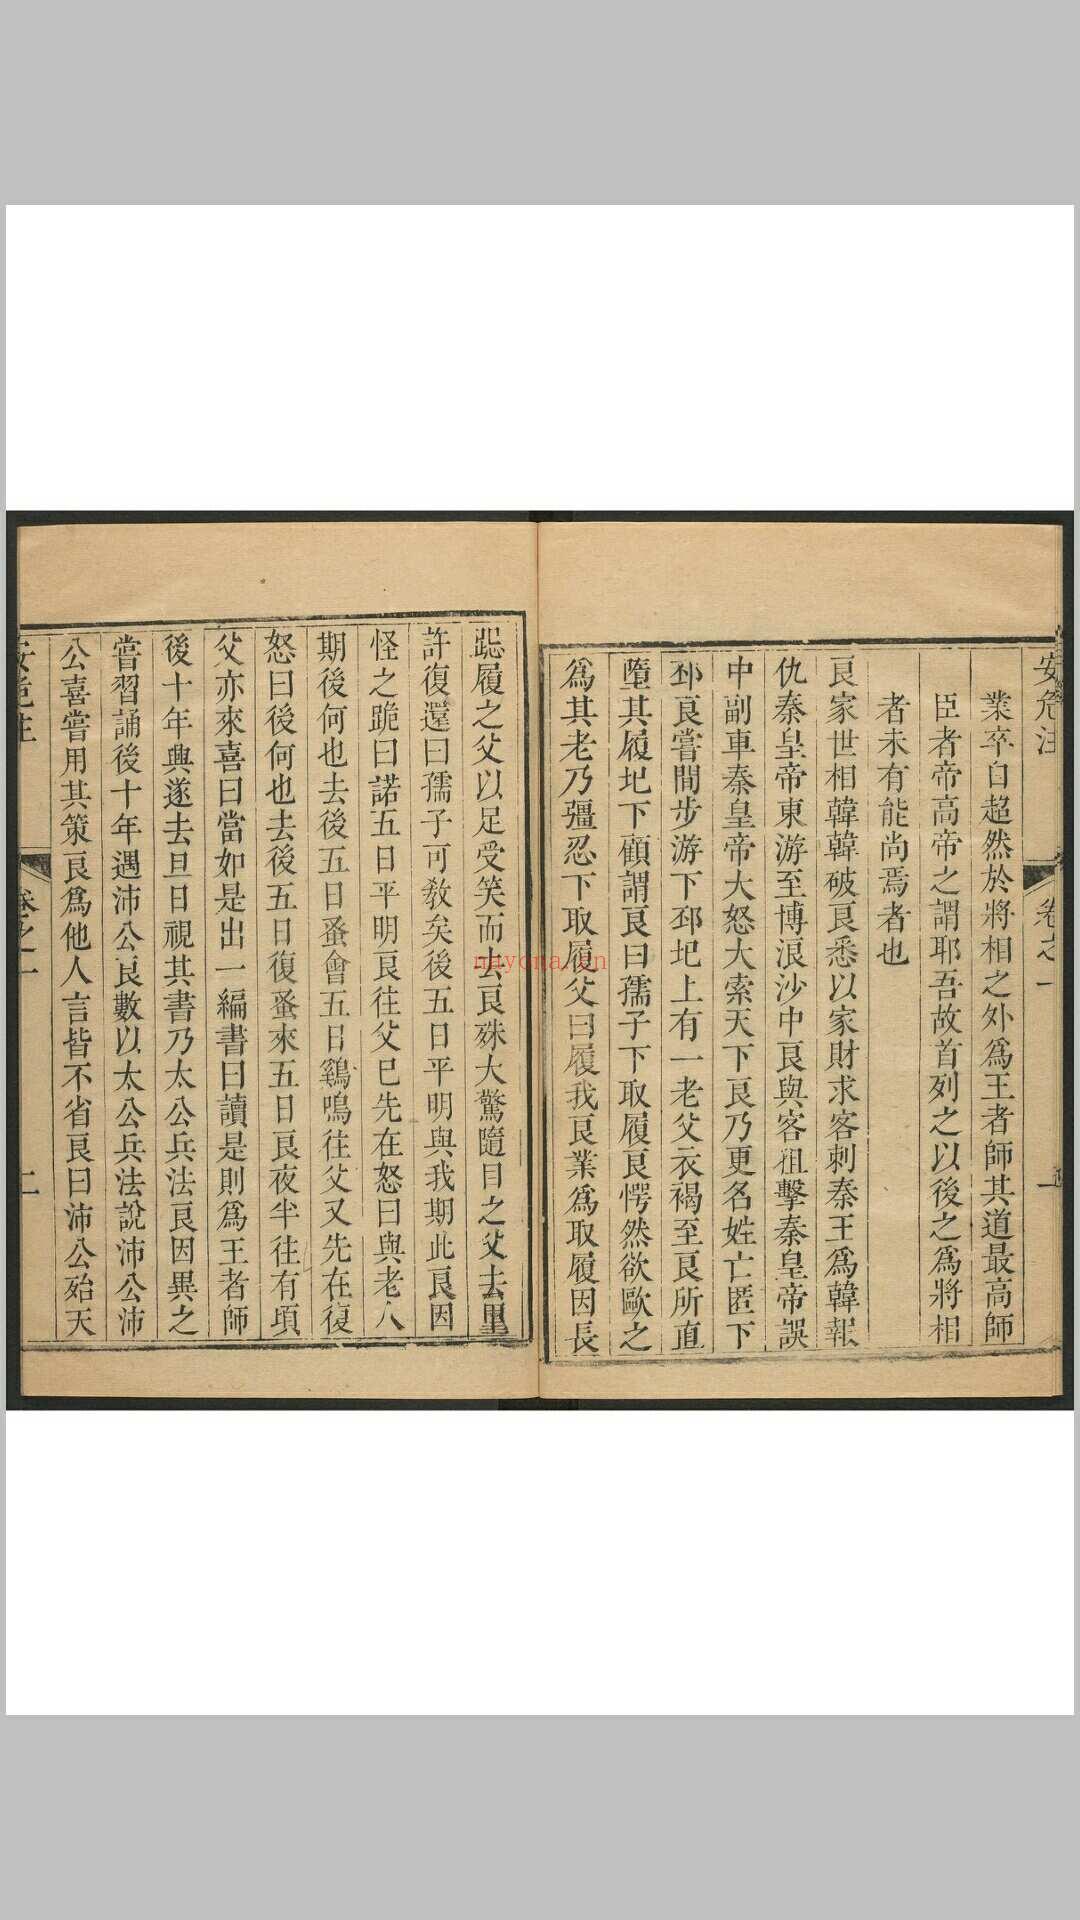 安危注
卷之一
一
業卒自超然於將相之外爲王者師其道最高師
臣者帝高帝之謂耶吾故首列之以後之爲將相
者未有能尚焉者也
良家世相韓韓破良悉以家財求客刺秦王爲韓報
仇秦皇帝東游至博浪沙中良與客狙擊秦皇帝誤
中副車秦皇帝大怒大索天下良乃更名姓亡匿下
邳良嘗間步游下邳圯上有一老父衣褐至良所直
墮其履圯下顧謂良曰孺子下取履良愕然欲歐之
爲其老乃彊忍下取履父曰履我良業爲取履因長
跽履之父以足受笑而去良殊大驚隨目之父去里
許復還曰孺子可教矣後五日平明與我期此良因
怪之跪曰諾五日平明良往父已先在怒曰與老人
期後何也去後五日蚤會五日鷄鳴往父又先在復
怒曰後何也去後五日復蚤來五日良夜半往有頃
父亦來喜曰當如是出一編書曰讀是則爲王者師
後十年興遂去旦日視其書乃太公兵法良因異之
嘗習誦後十年遇沛公良數以太公兵法說沛公沛
公喜嘗用其策良爲他人言皆不省良曰沛公殆天
安危注
卷之一
二
nayona.cn